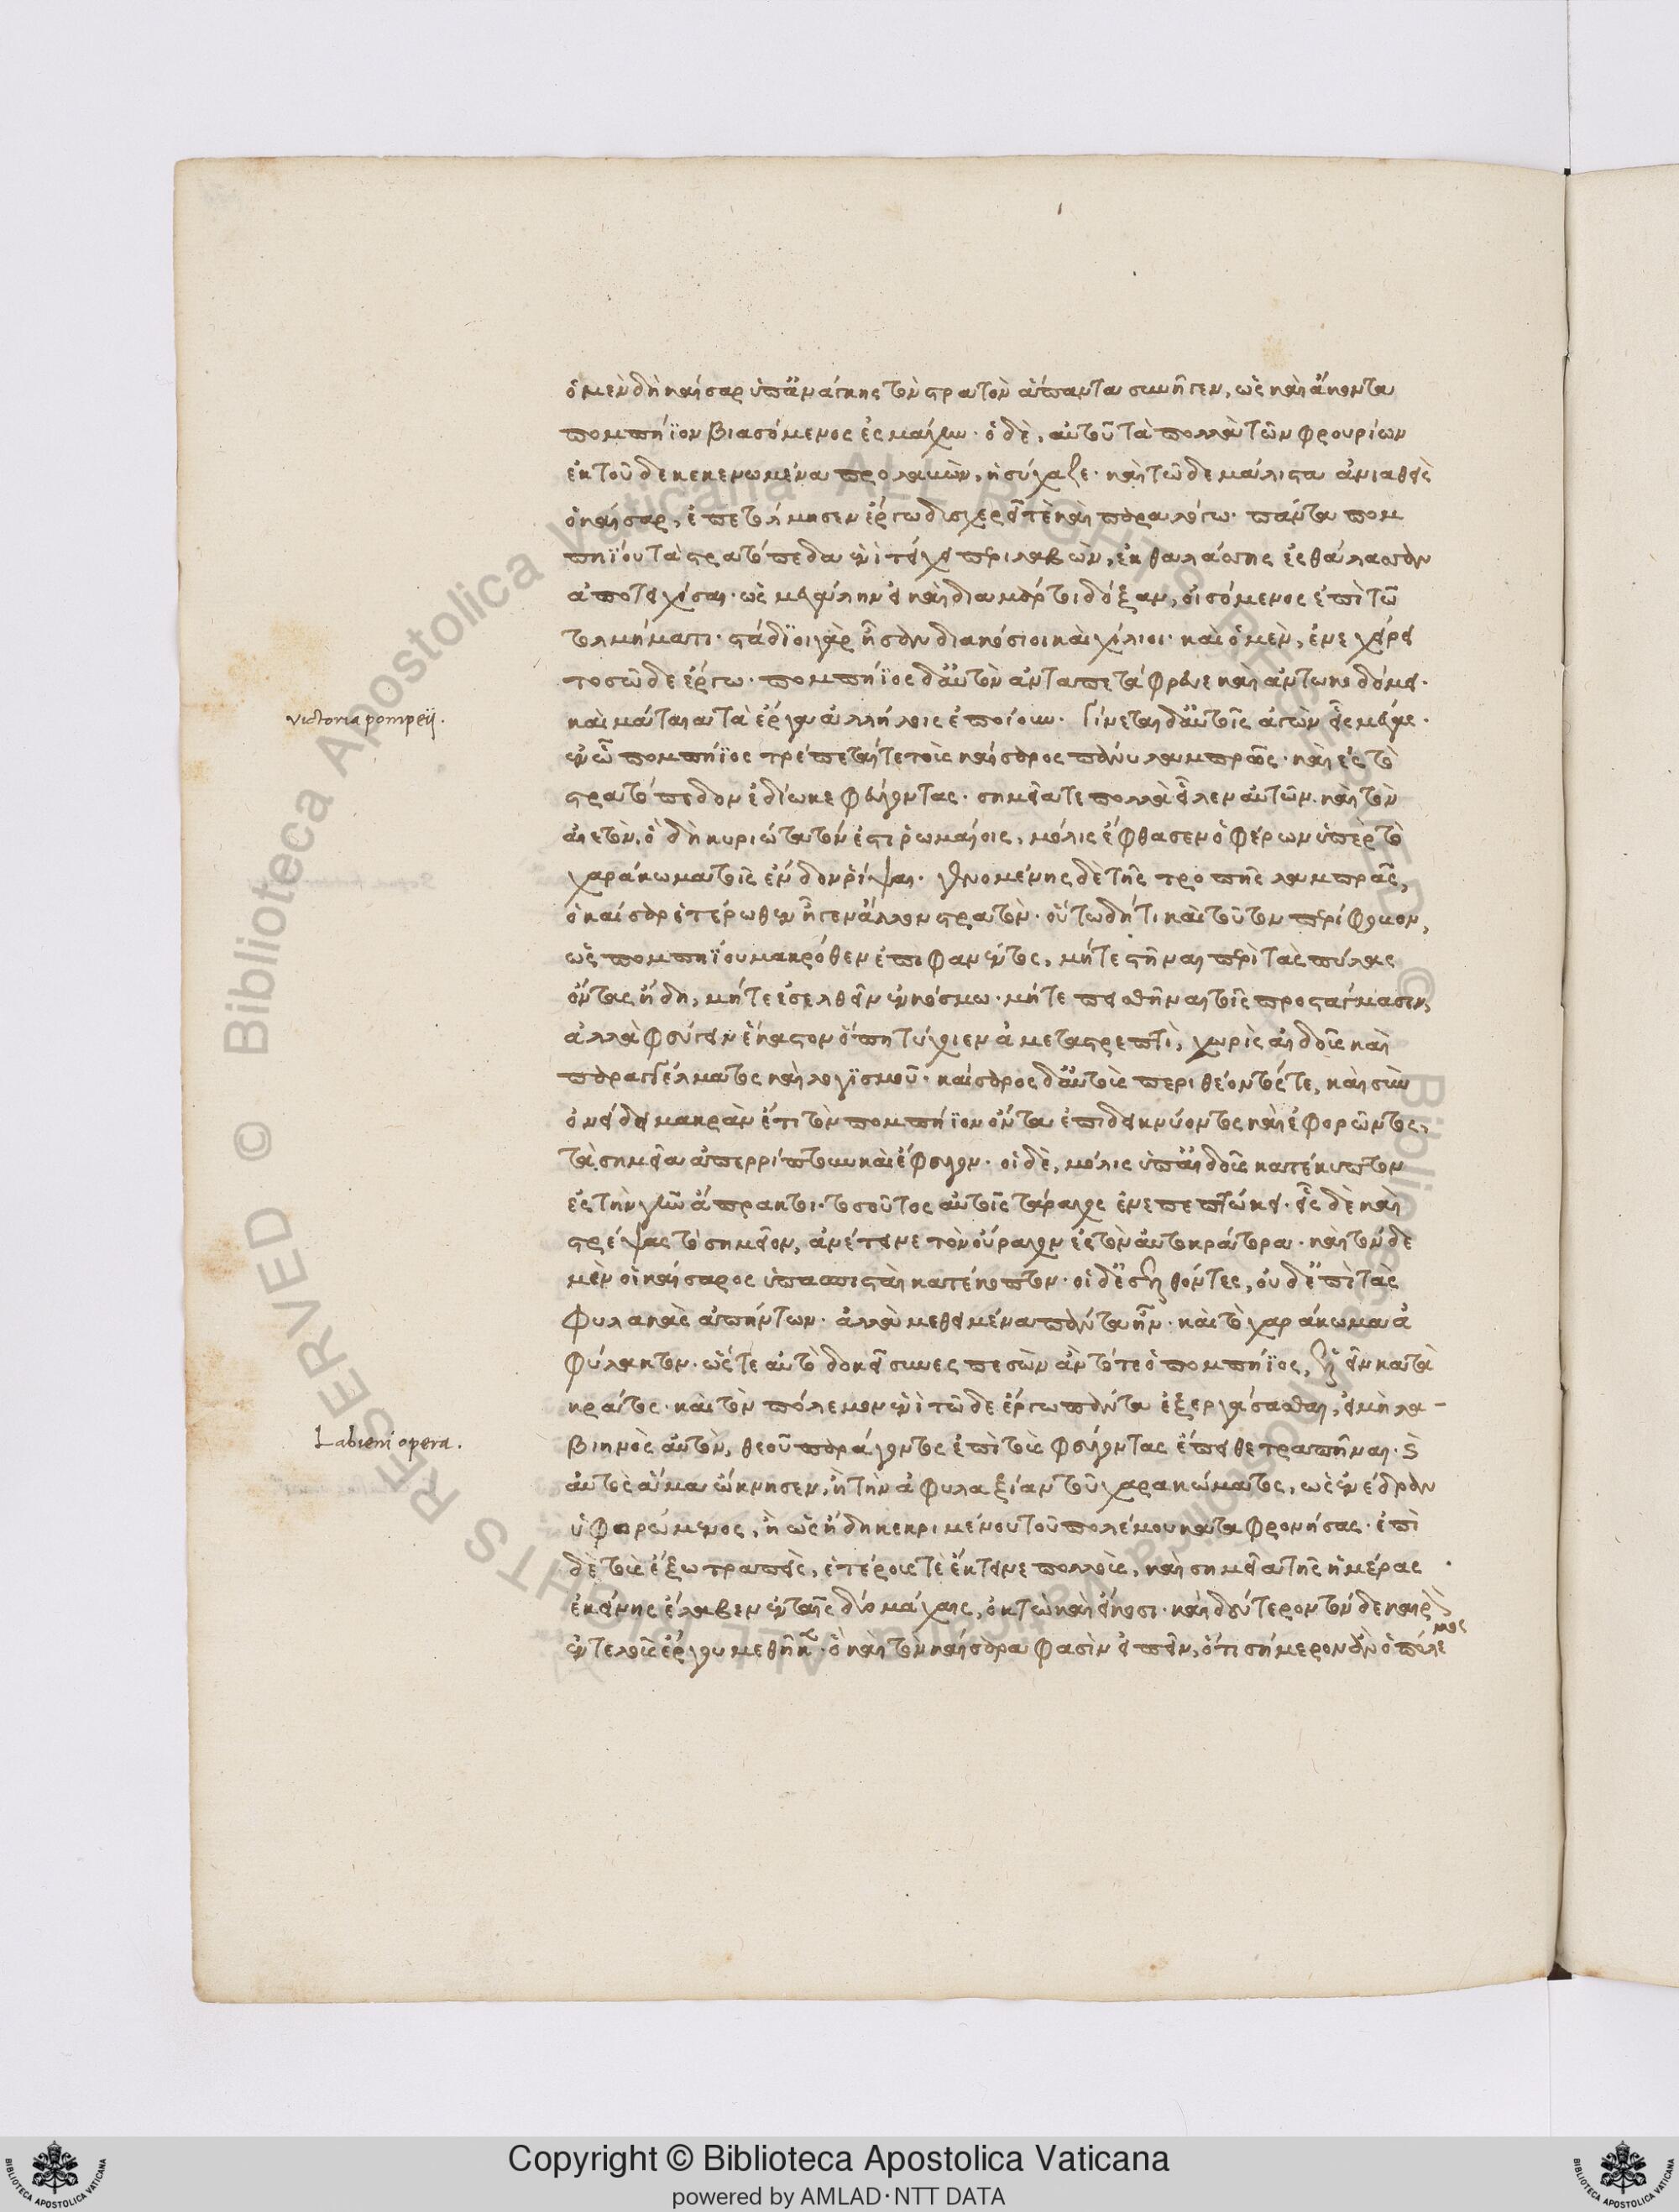 ὁ μὲν δὴ καῖσαρ ὑπ' ἀνάγκης τὸν στρατὸν ἅπαντα συνῆγεν, ὡς καὶ ἄκοντα
πομπήϊον βιασόμενος ἐς μάχην· ὁ δὲ, αὐτοῦ τὰ πολλὰ τῶν φρουρίων
ἐκ τοῦδε κεκενωμένα προλαβὼν, ἡσύχαζε· καὶ τῶδε μάλιστα ἀνιαθεὶς
ὁ καῖσαρ, ἐπετόλμησεν ἔργω δυσχερεῖ τὲ καὶ παραλόγω· πάντα πομ
πηΐου τὰ στρατόπεδα ἑνὶ τείχει περιλαβὼν, ἐκ θαλάσσης ἐς θάλασσαν
ἀποτειχίσαι· ὡς μεγάλην εἰ καὶ διαμάρτοι δόξαν, οἰσόμενος ἐπὶ τῶ
τολμήματι· στάδϊοι γὰρ ἦσαν διακόσιοι καὶ χίλιοι· καὶ ὁ μὲν, ἐνεχείρει
τοσῶδε ἔργω· πομπήϊος δ' αὐτὸν ἀνταπετάφρευε καὶ ἀντωκοδόμει·
victoria pompeij.
καὶ μάταια τὰ ἔργα ἀλλήλοις ἐποίουν. Γίνεται δ' αὐτοῖς ἀγὼν εἷς μέγας·
ἐν ὧ πομπήϊος τρέπεταί τε τοὺς καίσαρος πάνυ λαμπρῶς· καὶ ἐς τὸ
στρατόπεδον ἐδίωκε φεύγοντας· σημεῖά τε πολλὰ εἷλεν αὐτῶν· καὶ τὸν
αἰετὸν, ὃ δὴ κυριώτατόν ἐστι ῥωμαίοις, μόλις ἔφθασεν ὁ φέρων ὑπὲρ τὸ
χαράκωμα τοῖς ἔνδον ῥίψαι. γενομένης δὲ τῆς τροπῆς λαμπρᾶς,
ὁ καίσαρ ἑτέρωθεν ἦγεν ἄλλον στρατὸν· οὕτω δή τι καὶ τοῦτον περίφοβον,
ὡς πομπηΐου μακρόθεν ἐπιφανέντος, μήτε στῆναι περὶ τὰς πύλας
ὄντας ἤδη, μήτε ἐσελθεῖν ἐν κόσμω· μήτε πεισθῆναι τοῖς προστάγμασιν,
ἀλλὰ φεύγειν ἕκαστον ὅπη τύχοιεν ἀμεταστρεπτὶ, χωρὶς αἰδοῦς καὶ
παραγγέλματος καὶ λογϊσμοῦ· καίσαρος δ' αὐτοὺς περιθέοντός τε, καὶ σὺν
ὀνείδει μακρὰν ἔτι τὸν πομπήϊον ὄντα ἐπιδεικνύοντος καὶ ἐφορῶντος,
τὰ σημεῖα ἀπερρίπτουν καὶ ἔφευγον· οἱ δὲ, μόλις ὑπ' αἰδοῦς κατέκυπτον
ἐς τὴν γῆν ἄπρακτοι· τοσοῦτος αὐτοῖς τάραχος ἐνεπεπτώκει· εἷς δὲ καὶ
στρέψας τὸ σημεῖον, ἀνέτεινε τὸν οὐρίαχον ἐς τὸν αὐτοκράτορα· καὶ τόνδε
μὲν οἱ καίσαρος ὑπασπισταὶ κατέκοπτον· οἱ δ' ἐσελθόντες, οὐδ' ἐπὶ τὰς
φυλακὰς ἀπήντων· ἀλλὰ μεθειμένα πάντα ἦν· καὶ τὸ χαράκωμα ἀ
φύλακτον· ὥς τε αὐτὸ δοκεῖ συνεσπεσὼν ἂν τότε ὁ πομπήϊος, ἑλεῖν κατὰ
κράτος· καὶ τὸν πόλεμον ἑνὶ τῶδε ἔργω πάντα ἐξεργάσασθαι, εἰ μὴ λα-
Labieni opera.
βιηνὸς αὐτὸν, θεοῦ παράγοντος ἐπὶ τοὺς φεύγοντας ἔπειθε τραπῆναι· καὶ
αὐτὸς ἅμα ὤκνησεν, ἢ τὴν ἀφυλαξίαν τοῦ χαρακώματος, ὡς ἐνέδραν
ὑφορώμενος, ἢ ὡς ἤδη κεκριμένου τοῦ πολέμου καταφρονήσας· ἐπὶ
δὲ τοὺς ἔξω τραπεὶς, ἑτέρους τὲ ἔκτεινε πολλοὺς, καὶ σημεῖα τῆς ἡμέρας
ἐκείνης ἔλαβεν ἐν ταῖς δύο μάχαις, ὀκτὼ καὶ εἴκοσι· καὶ δεύτερον τόνδε καιρὸν
ἐντελοῦς ἔργου μεθῆκε· ὃ καὶ τὸν καίσαρα φασὶν εἰπεῖν, ὅτι σήμερον ἂν ὁ πόλεμος